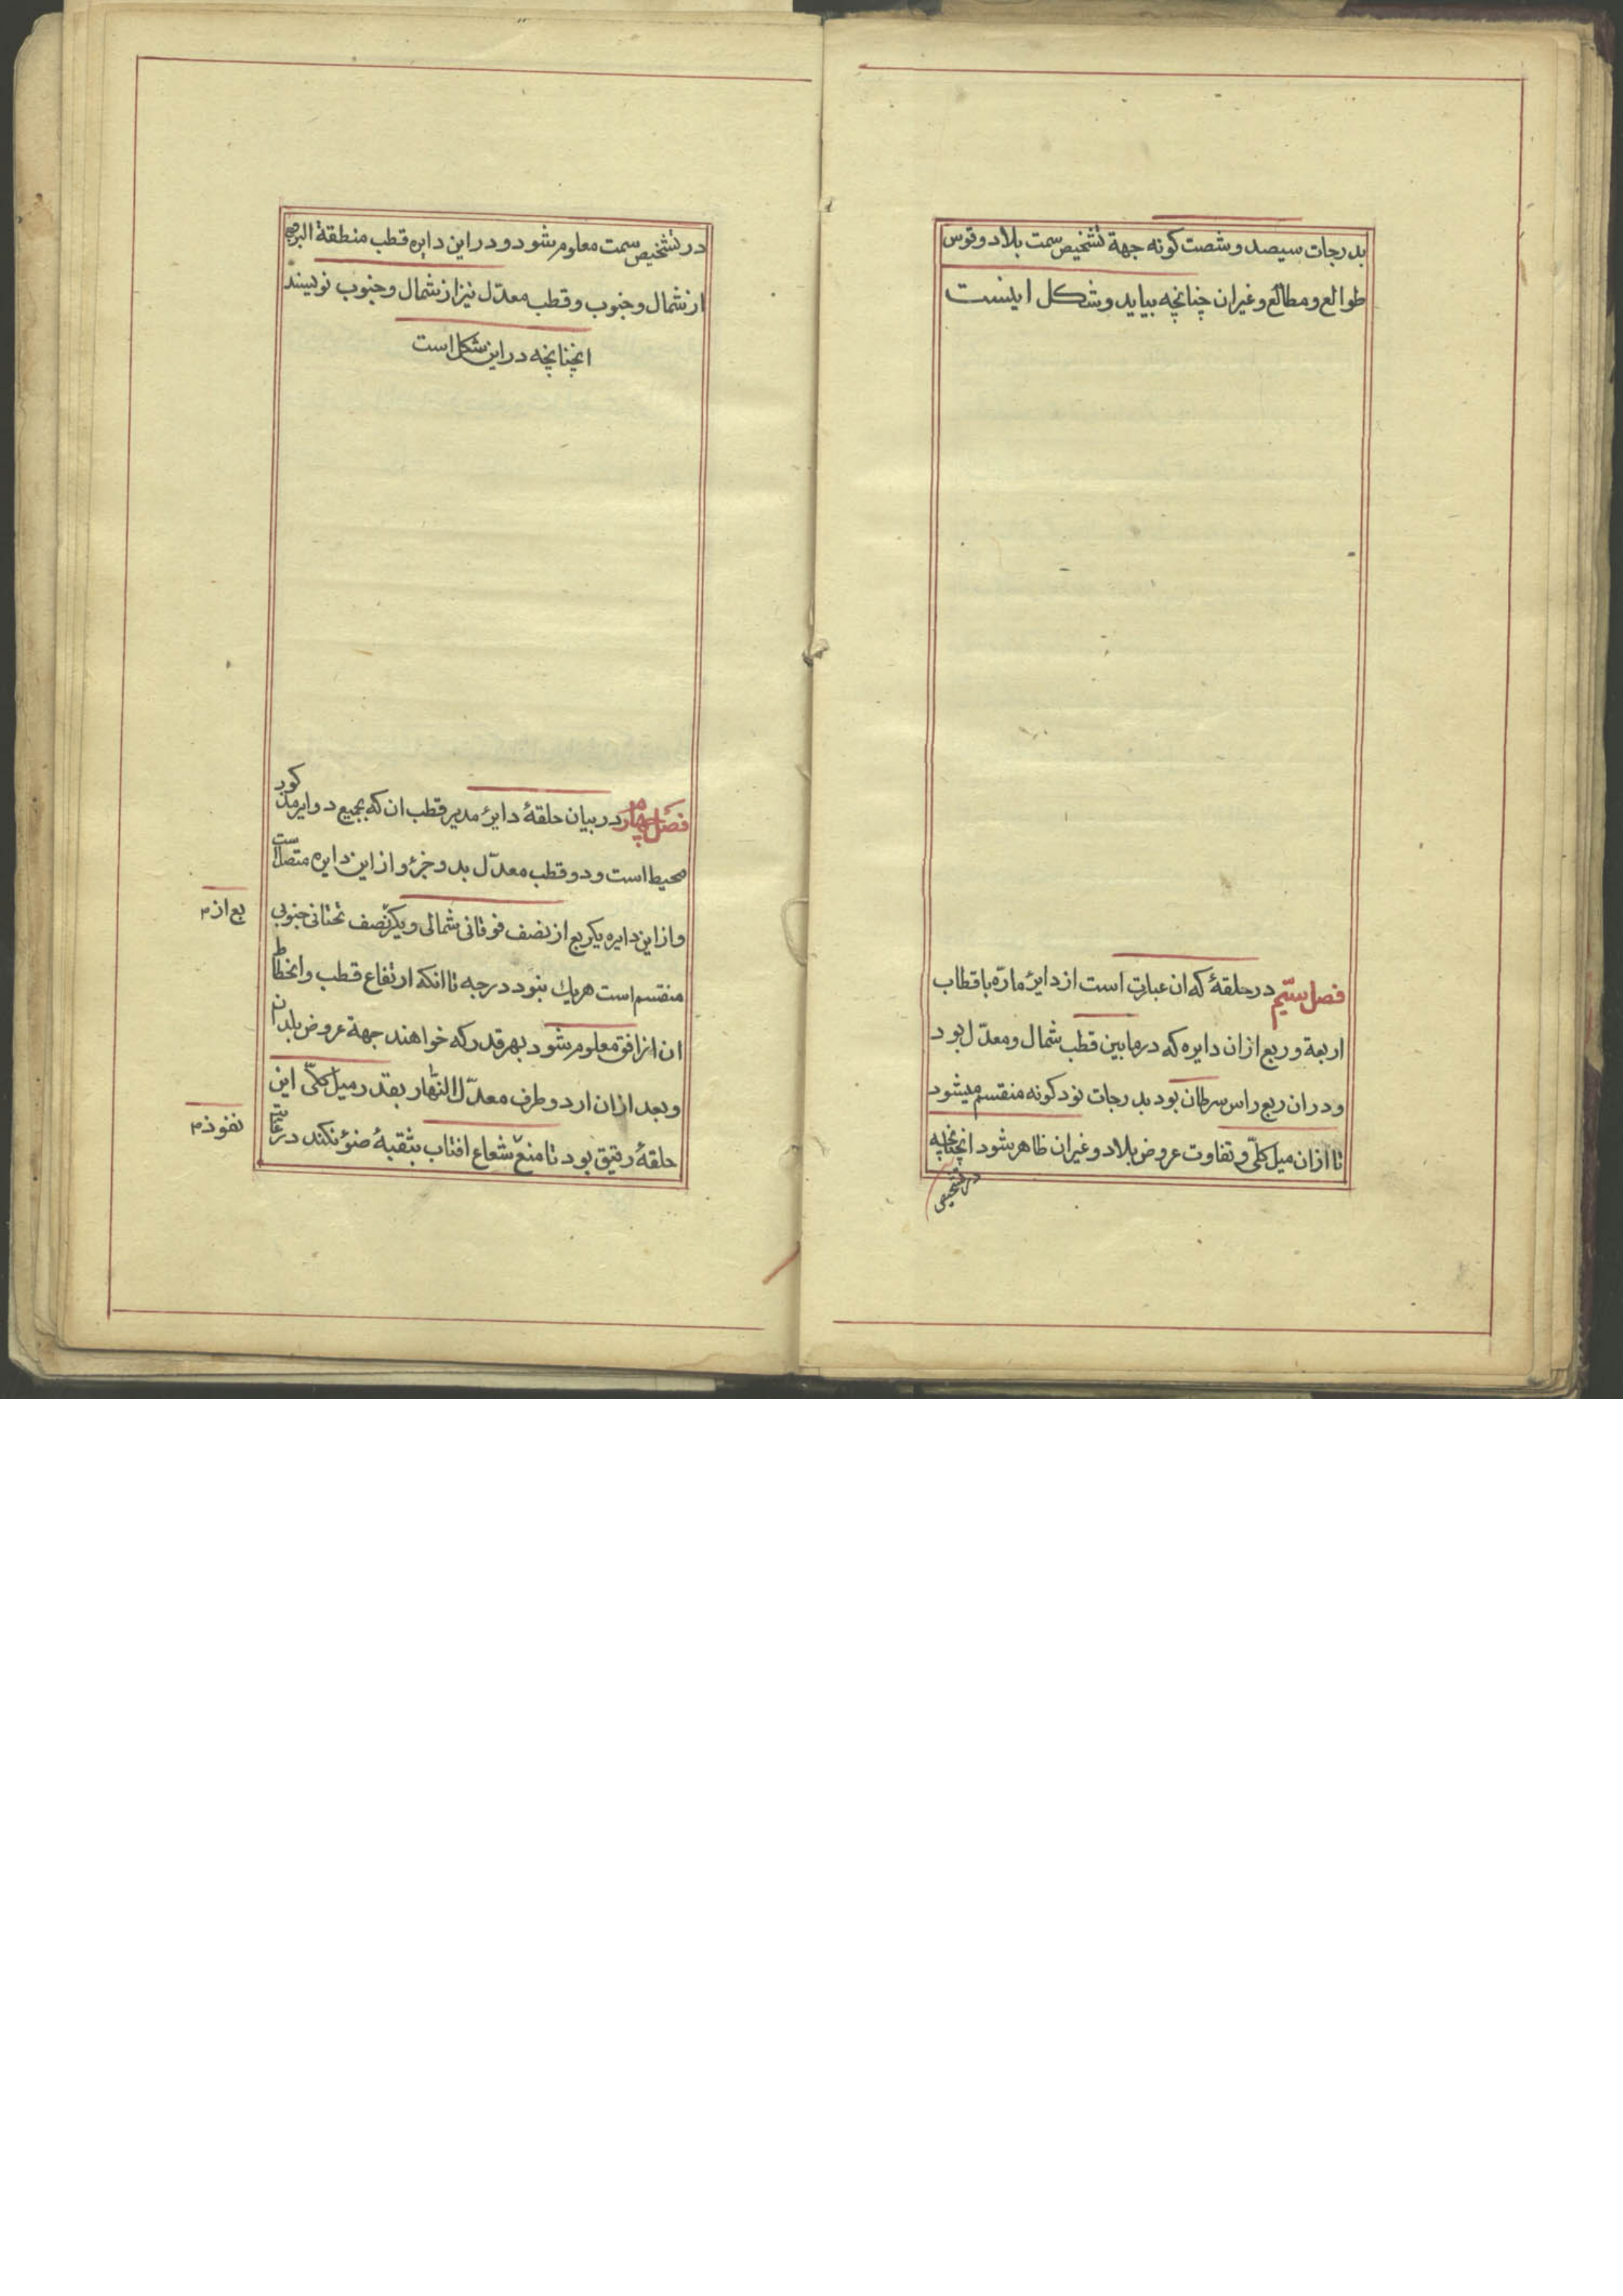 بدرجات سیصد و شصت کونه جهة تشخیص سمت بلاد و قوس
طوالع و مطالع و غیر ان چنانچه بیاید و شکل اینست
فصل سیّم در حلقهٔ که ان عبارت است از دایرهٔ مارّه باقطاب
اربعة و ربع از ان دایره که در مابین قطب شمال و معدّل بود
و در ان ربع راس سرطان بود بدرجات نود کونه منقسم میشود
تا از ان میل کلّی و تفاوت عروض بلاد و غیر ان ظاهر شود انچنانچه
در تشخیص
در تشخیص سمت معلوم شود و در این دایره قطب منطقة البروج
از شمال و جنوب و قطب معدّل نیز از شمال و جنوب نویسند
انچنانچه در این شکل است
فصل چهارم در بیان حلقهٔ دایرهٔ مدیر قطب ان که بجمیع دوایر مذکور
محیط است و دو قطب معدّل بدو جزؤ از این دایره متصل است
و از این دایره یکربع از نصف فوقانی شمالی و یکر نصف تحتانی جنوبی
بع از م
منقسم است هریك بنود درجه تا انکه ارتفاع قطب و انحطاط
ان از افق معلوم شود بهر قدر که خواهند جهة عروض بلدان
و بعد از ان ار دو طرف معدّل النّهار بقدر میل کلّی این
حلقهٔ رقیق بود تا منع شعاع افتاب بثقبهٔ ضوٴ نکند در غایت
نفوذ م